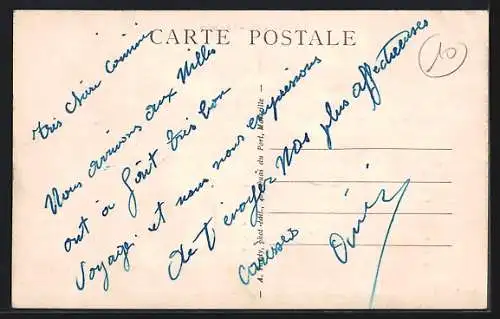 CARTE POSTALE
10
très chère cousine
Nous arrivons aux Milles
ont a fait très bon
voyage et nous nous empressons
de t'envoyer nos plus affectueuses
caresses
du Port, Marseille